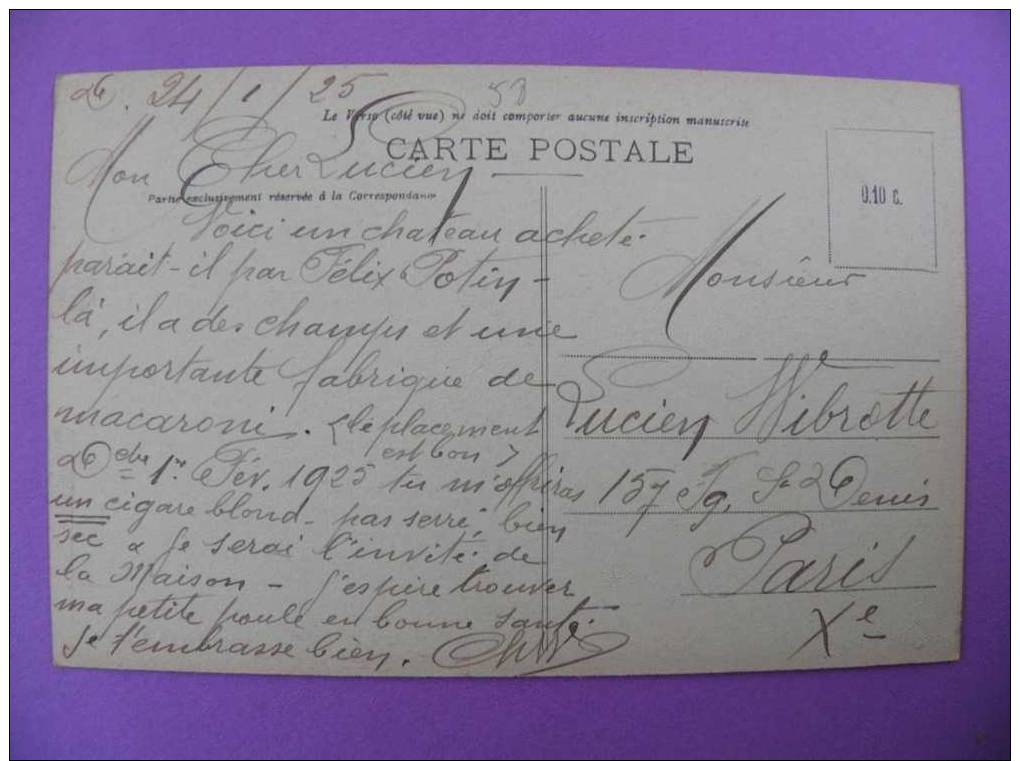 Le. 24/1/25
58
Le Verso (côté vue) ne doit comporter aucune inscription manuscrite
CARTE POSTALE
Mon Cher Lucien
Partie exclusivement réservée à la Correspondance
Voici un chateau acheté
parait-il par Félix Potin -
là, il a des champs et une
importante fabrique de
macaroni. (le placement
est bon)
1er Fév. 1925 tu m'offriras
un cigare blond - pas serré, bien
sec & je serai l'invité de
la Maison - J'espère trouver
ma petite poule en bonne santé.
Je t'embrasse bien.
0.10 c.
Monsieur
Lucien Wibrotte
157 Fg. St Denis
Paris
Xe